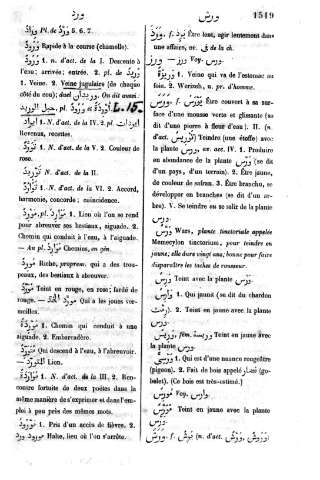 ورد
ورس
1519
وُرَّادٌ Pl. de وَارِدٌ 5. 6. 7.
وَرُودٌ Rapide à la course (chamelle).
وُرُودٌ 1. n. d'act. de la I. Descente à
l'eau; arrivée; entrée. 2. pl. de وَرِيدٌ
1. Veine. 2. Veine jugulaire (de chaque
côté du cou); duel وريدان On dit aussi:
حبل الوريد, pl. أوردة L. 15.
إيراد 1. N. d'act. de la IV. 2. pl. إيرادات
Revenus, recettes.
1. N. d'act. de la V. 2. Couleur de
rose.
N. d'act. de la II.
1. N. d'act. de la VI. 2. Accord,
harmonie, concorde; coïncidence.
مورد, pl. 1. Lieu où l'on se rend
pour abreuver ses bestiaux, aiguade. 2.
Chemin qui conduit à l'eau, à l'aiguade.
— Au pl. موارد Chemins, en gén.
Riche, propriem. qui a des trou-
peaux, des bestiaux à abreuver.
مُوَرَّدٌ Teint en rouge, en rose; fardé de
rouge. — مورد الخد Qui a les joues ver-
meilles.
موردة 1. Chemin qui conduit à une
aiguade. 2. Embarcadère.
Qui descend à l'eau, à l'abreuvoir.
— المتورد Lion.
مواردة 1. N. d'act. de la III. 2. Ren-
contre fortuite de deux poètes dans la
même manière de s'exprimer et dans l'em-
ploi à peu près des mêmes mots.
مورود 1. Pris d'un accès de fièvre. 2.
Halte, lieu où l'on s'arrête.
f. Être lent, agir lentement dans
une affaire, av. في de la ch.
ورز — Voy. ورز
1. Veine qui va de l'estomac au
foie. 2. Warizeh, n. pr. d'homme.
ورس f. Être couvert à sa sur-
face d'une mousse verte et glissante (se
dit d'une pierre à fleur d'eau). II. (n.
d'act. توريس) Teindre (une étoffe) avec
la plante ورس, av. acc. IV. 1. Produire
en abondance de la plante ورس (se dit
d'un pays, d'un terrain). 2. Être jaune,
de couleur de safran. 3. Être branchu, se
développer en branches (se dit d'un ar-
bre). V. Se teindre ou se salir de la plante
ورس.
ورس Wars, plante tinctoriale appelée
Memecylon tinctorium, pour teindre en
jaune; elle dure vingt ans; bonne pour faire
disparaître les taches de rousseur.
Teint avec la plante ورس.
1. Qui jaunit (se dit du chardon
رمث). 2. Teint en jaune avec la plante
ورس.
وريس, fém. وريسة Teint en jaune avec
la plante ورس.
1. Qui est d'une nuance rougeâtre
(pigeon). 2. Fait de bois appelé نضار (go-
belet). (Ce bois est très-estimé.)
Voy. وارس.
Teint en jaune avec la plante
ورس.
ورش f. يرش (n. d'act. ورش, وروش